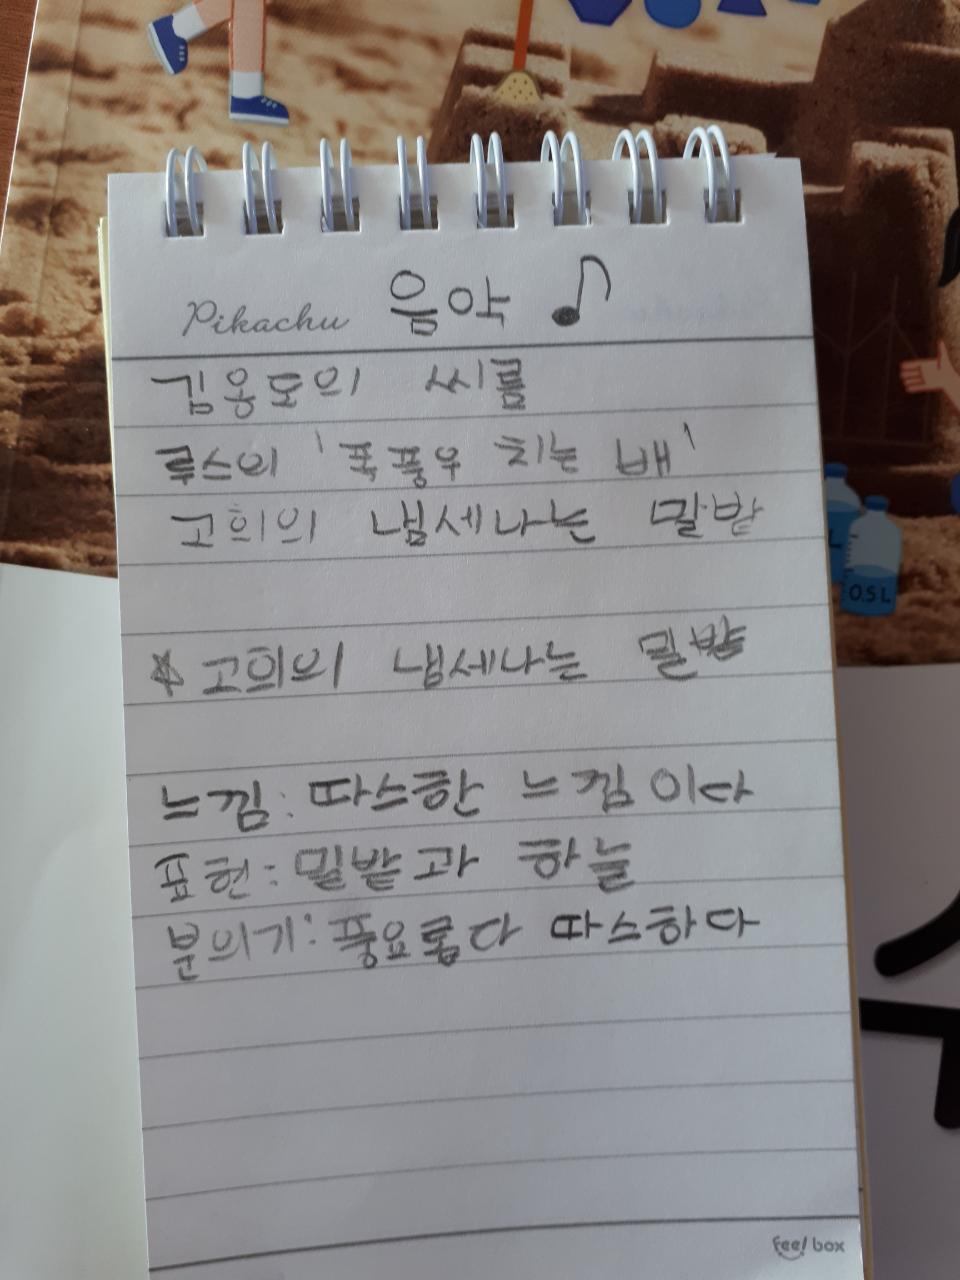 Pikachu 음악 ♪
김웅도의 씨름
루스의 '폭풍우 치는 배'
고희의 냄세나는 밀밭
☆ 고희의 냄세나는 밀밭
느낌: 따스한 느낌이다
표현: 밀밭과 하늘
분의기: 풍요롭다 따스하다
feel box
0.5L